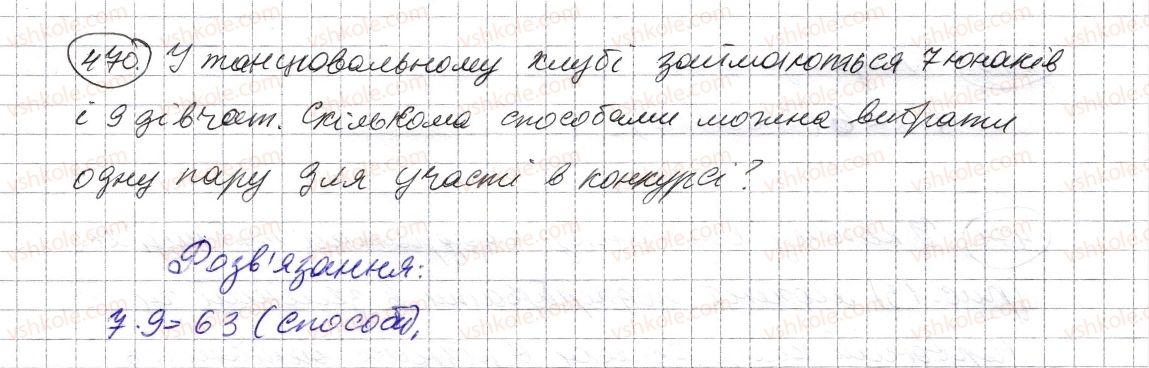 470. У танцювальному клубі займаються 7 юнаків
і 9 дівчат. Скількома способами можна вибрати
одну пару для участі в конкурсі?
Розв'язання:
7·9=63 (способи),